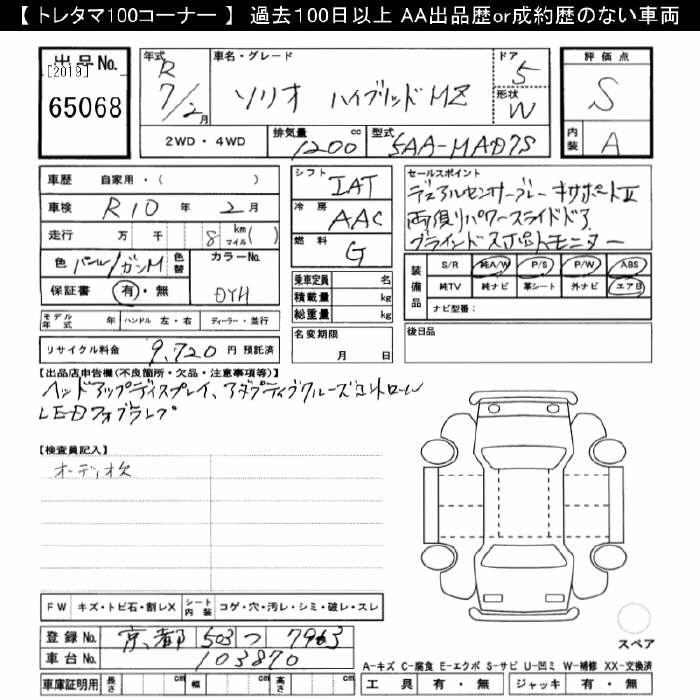 【 トレタマ100コーナー 】 過去100日以上 AA出品歴or成約歴のない車両
出品No. [2019] 65068
年式 R 7/2月 車名・グレード ソリオ ハイブリッドMZ ドア 5 形状 W
評価点 S
内装 A
2WD・4WD 排気量 1200 cc 型式 5AA-MAD7S
車歴 自家用・( )
車検 R10 年 2 月
走行 万 千 8 km マイル( )
色 パール/ガンM 色替 カラーNo. DYH
保証書 有・無
モデル年式 年 ハンドル 左・右 ディーラー・並行
リサイクル料金 9,720 円 預託済
シフト IAT
冷房 AAC
燃料 G
乗車定員 名
積載量 kg
総重量 kg
名変期限 月 日
セールスポイント
デュアルセンサーブレーキサポートⅡ
両側パワースライドドア
ブラインドスポットモニター
装備品 S/R 純A/W P/S P/W ABS
純TV 純ナビ 革シート 外ナビ エアB
ナビ型番：
後日品
【出品店申告欄(不良箇所・欠品・注意事項等)】
ヘッドアップディスプレイ、アダプティブクルーズコントロール
LEDフォグランプ
【検査員記入】
オーディオ欠
FW キズ・トビ石・割レX シート内装 コゲ・穴・汚レ・シミ・破レ・スレ
登録No. 京都 503 つ 7963
車台No. 103870
車庫証明用 長さ cm 幅 cm 高さ cm
スペア
A-キズ C-腐食 E-エクボ S-サビ U-凹ミ W-補修 XX-交換済
工具 有・無 ジャッキ 有・無